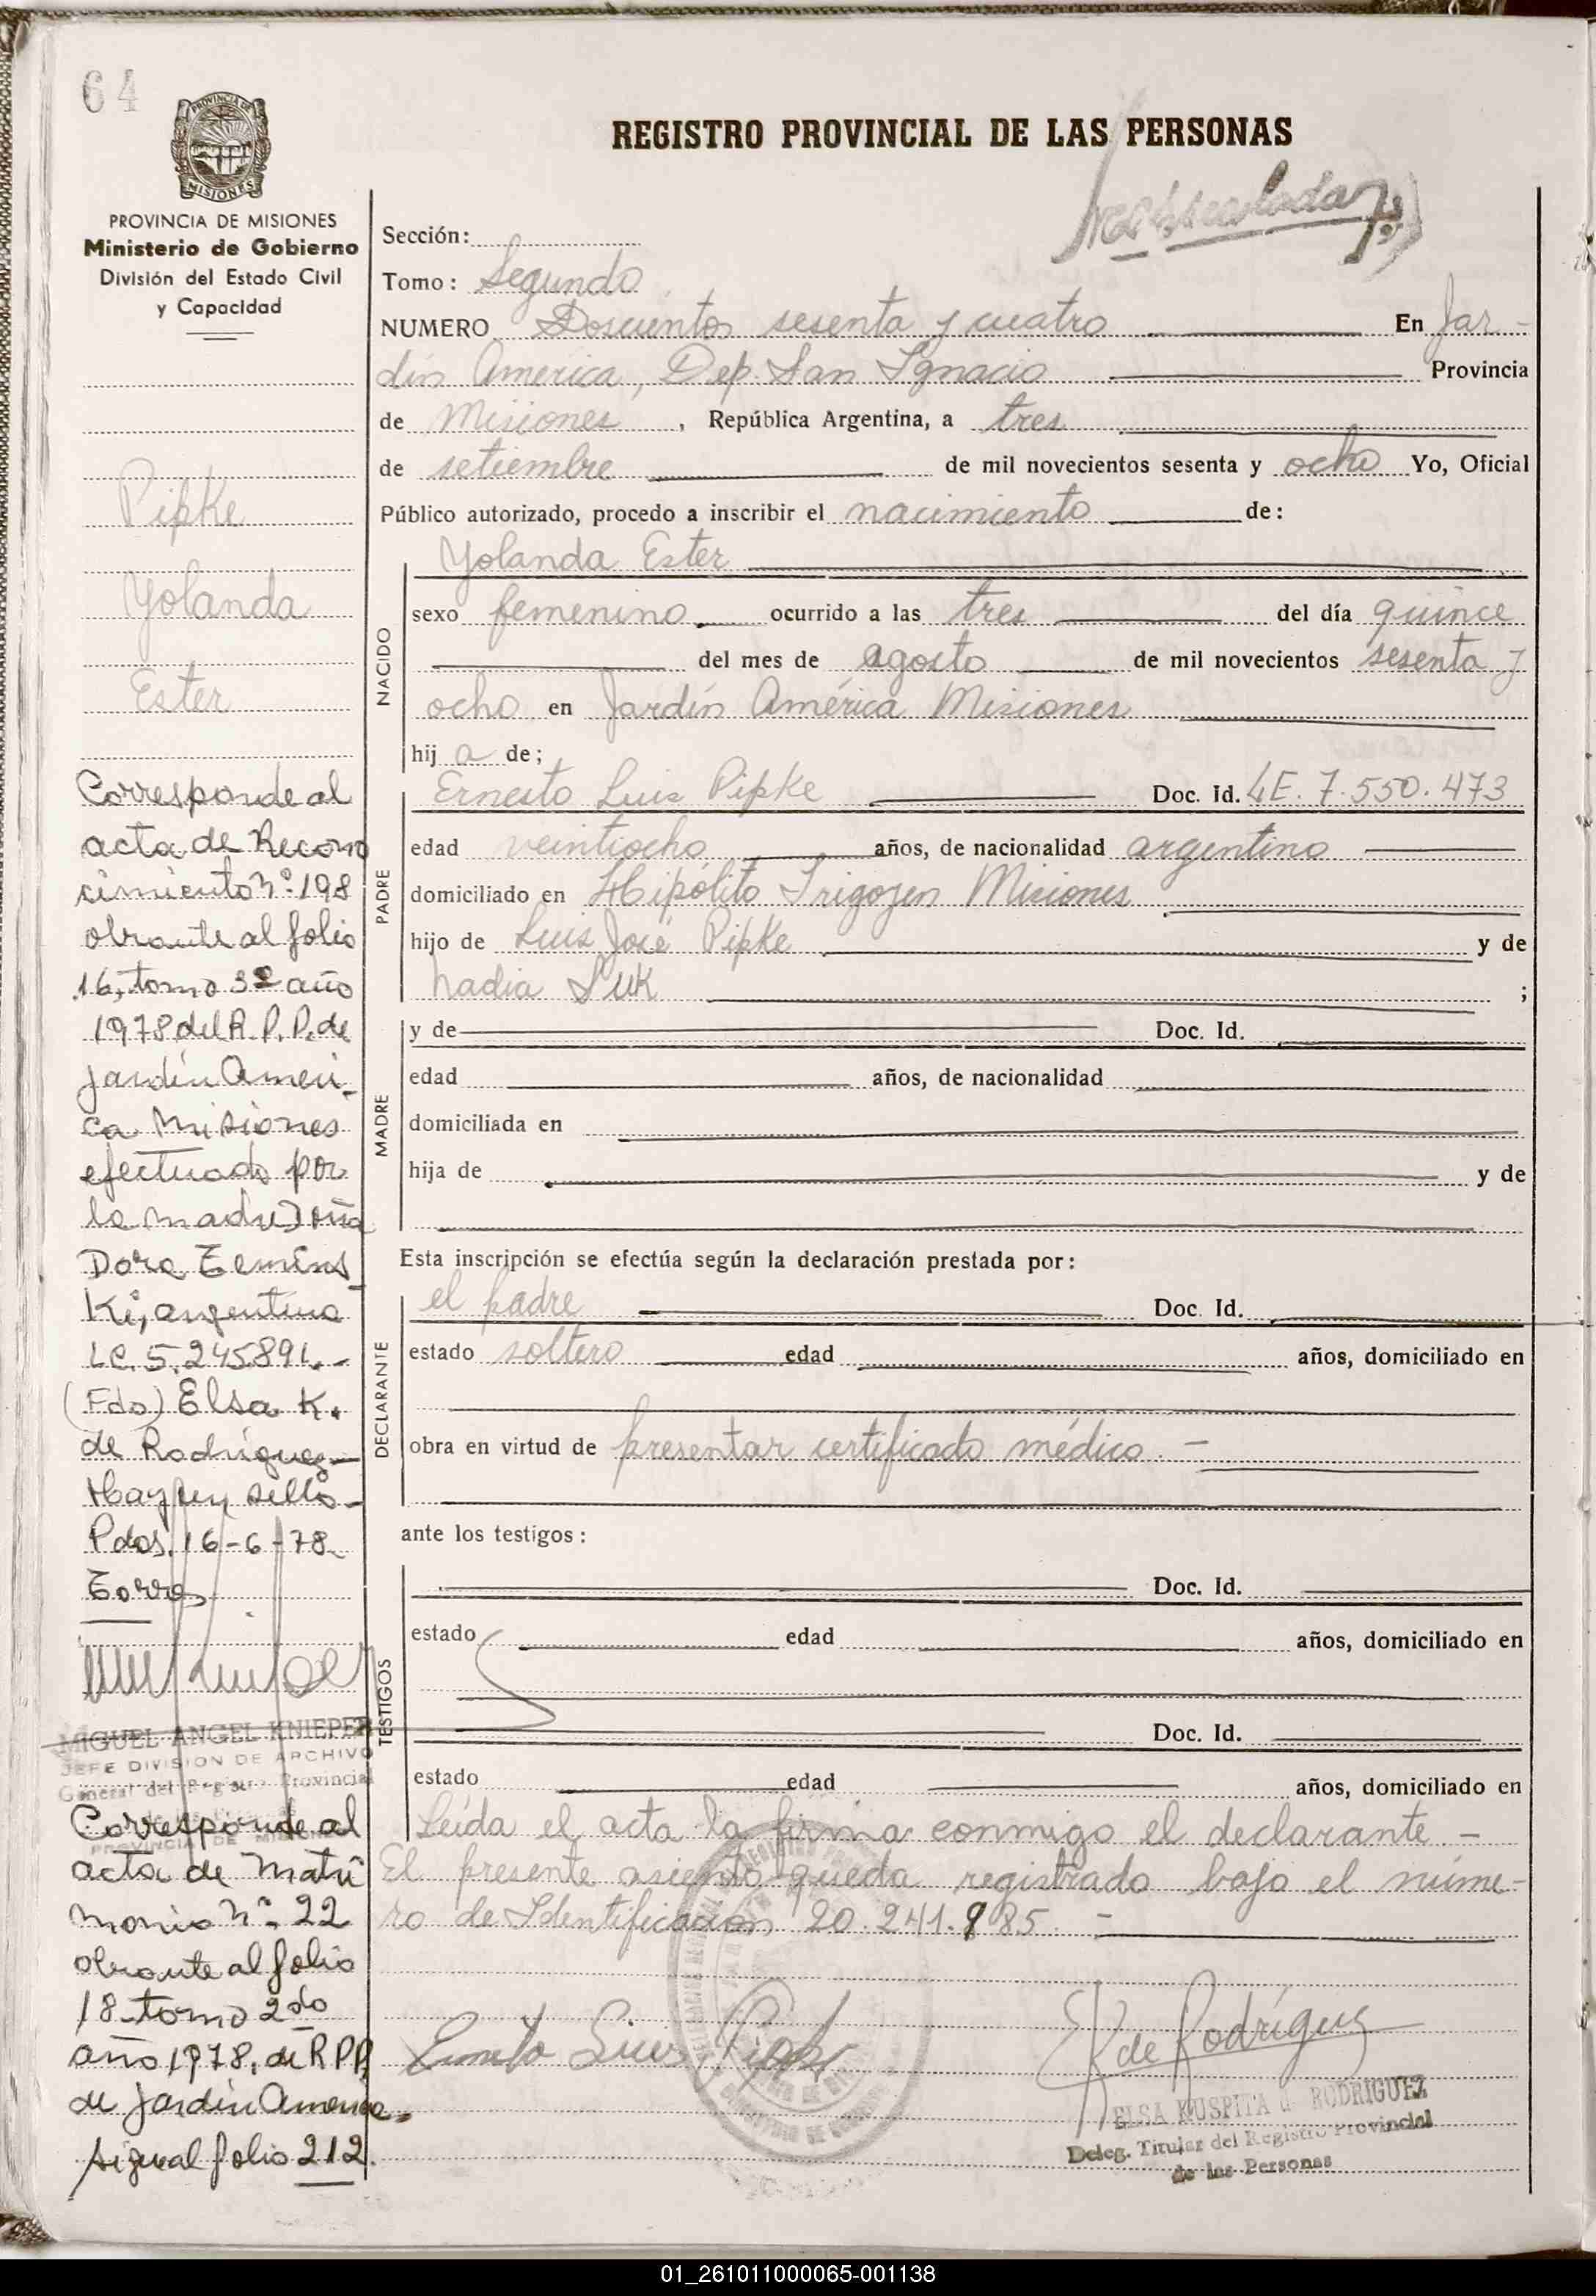 64
PROVINCIA DE
MISIONES
PROVINCIA DE MISIONES
Ministerio de Gobierno
División del Estado Civil
y Capacidad
REGISTRO PROVINCIAL DE LAS PERSONAS
Sección:
Tomo: Segundo
NUMERO Doscientos sesenta y cuatro En Jar-
dín América, Dep. San Ignacio Provincia
de Misiones, República Argentina, a tres
de setiembre de mil novecientos sesenta y ocho Yo, Oficial
Público autorizado, procedo a inscribir el nacimiento de:
Yolanda Ester
NACIDO
sexo femenino ocurrido a las tres del día quince
del mes de agosto de mil novecientos sesenta y
ocho en Jardín América Misiones
hija de;
PADRE
Ernesto Luis Pipke Doc. Id. LE. 7.550.473
edad veintiocho años, de nacionalidad argentino
domiciliado en Hipólito Irigoyen Misiones
hijo de Luis José Pipke y de
Nadia Suk ;
MADRE
y de Doc. Id.
edad años, de nacionalidad
domiciliada en
hija de y de
Esta inscripción se efectúa según la declaración prestada por:
DECLARANTE
el padre Doc. Id.
estado soltero edad años, domiciliado en
obra en virtud de presentar certificado médico. -
ante los testigos:
TESTIGOS
Doc. Id.
estado edad años, domiciliado en
Doc. Id.
estado edad años, domiciliado en
Leída el acta la firma conmigo el declarante. -
El presente asiento queda registrado bajo el núme-
ro de Identificación 20.241.985. -
Ernesto Luis Pipke
EK de Rodríguez
ELSA KUSPITA de RODRIGUEZ
Deleg. Titular del Registro Provincial
de las Personas
Pipke
Yolanda
Ester
Corresponde al
acta de Recono
cimiento Nº 198
obrante al folio
16, tomo 3º año
1978 del R.P.P. de
Jardín Améri-
ca Misiones
efectuado por
la madre Doña
Dora Zemins
Ki, argentina
LC. 5.245891.-
(Fdo) Elsa K.
de Rodríguez-
Hay un sello-
Pdas. 16-6-78
Torres
MIGUEL ANGEL KNIEPER
JEFE DIVISION DE ARCHIVO
General del Registro Provincial
de las Personas
PROVINCIA DE MISIONES
Corresponde al
acta de Matri
monio Nº 22
obrante al folio
18-tomo 2do
año 1978, de RPP
de Jardín América.
sigue al folio 212.
01_261011000065-001138